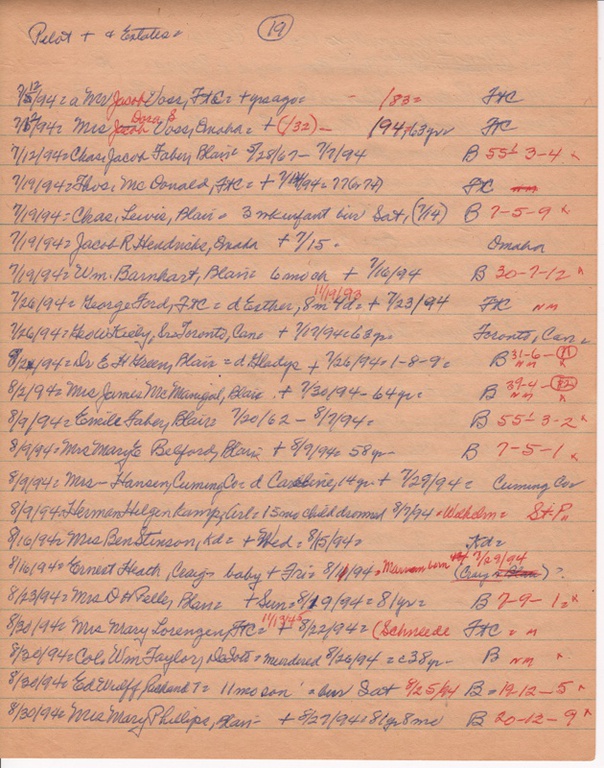 Pilot + & Estates =
19
7/12/94 = a Mr Jacob Voss, FtC = + yrs ago = - /83 = FtC
7/12/94 = Mrs Jacob Dora E Voss, Omaha = + (/32) - /94, 63 yr FtC
7/12/94 = Chas Jacob Faber, Blair = 5/28/67 - 7/7/94 B 55½-3-4 x
7/19/94 = Thos. McDonald, FtC = + 7/ /94 = 77 or 78 FC
7/19/94 = Chas, Lewis, Blair = 3 mk infant bur Sat, (7/14) B 7-5-9 x
7/19/94 = Jacob R Hendricks, Omaha + 7/15 = Omaha
7/19/94 = Wm. Barnhart, Blair = 6 mo ch + 7/16/94 B 30-7-12 x
7/26/94 = George Ford, FtC = d Esther, 8m 4d = 11/19/93 + 7/23/94 FtC NM
7/26/94 = Geo W Keely, Sr Toronto, Can = + 7/17/94 = 63 yr = Toronto, Can =
8/2/94 = Dr E H Green, Blair = d Gladys + 7/26/94 = 1-8-9 = B 31-6-(11) NM x
8/2/94 = Mrs James McManigal, Blair + 7/30/94 - 64 yr = B 39-4-(12) NM x
8/9/94 = Emile Faber, Blair = 7/20/62 - 8/7/94 = B 55½-3-2 x
8/9/94 = Mrs Mary E Belford, Blair + 8/9/94 = 58 yr - B 7-5-1 x
8/9/94 = Mrs - Hansen, Cuming Co = d Caroline, 14 yr + 7/29/94 = Cuming Co
8/9/94 = Herman Hilgenkamp, Arl = 15 mo child drowned 8/7/94 = Wilhelm = St. P
8/16/94 = Mrs Ben Stinson, Kd = + Wed = 8/15/94 = Kd =
8/16/94 = Ernest Heath, Craig = baby + Fri = 8/ /94 = born 3/29/94 (Craig Blair) ?
8/23/94 = Mrs D H Peller, Blair = + Sun = 8/19/94 = 81 yr = B 7-9-1 = x
8/30/94 = Mrs Mary Lorenzen, FtC = 11/13/45 + 8/22/94 = (Schneede FtC = M
8/30/94 = Col. Wm Taylor, DeSoto = murdered 8/26/94 = c38 yr - B NM x
8/30/94 = Ed Wulff, ? = 11 mo son = bur Sat 8/25/94 B = 19-12-5 x
8/30/94 = Mrs Mary Phillips, Blair - + 8/27/94 = 81 yr 8 mo B 20-12-9 x